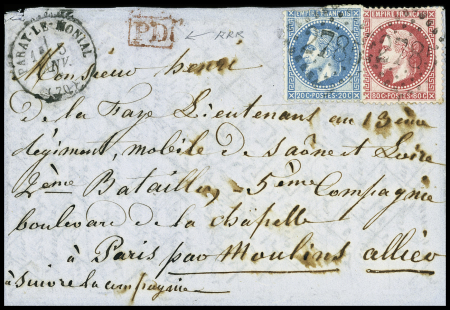 PARAY-LE-MONIAL
5
P.D.
RRR
EMPIRE FRANÇAIS
EMPIRE FRANÇAIS
20c POSTES 20c
80c POSTES 80c
Monsieur henri
de la Faye Lieutenant au 13 ème
régiment, mobile de saône et Loire
2ème Bataillon, 5ème Compagnie
boulevare de la chapelle
à Paris par Moulins allier
à suivre la campagnie